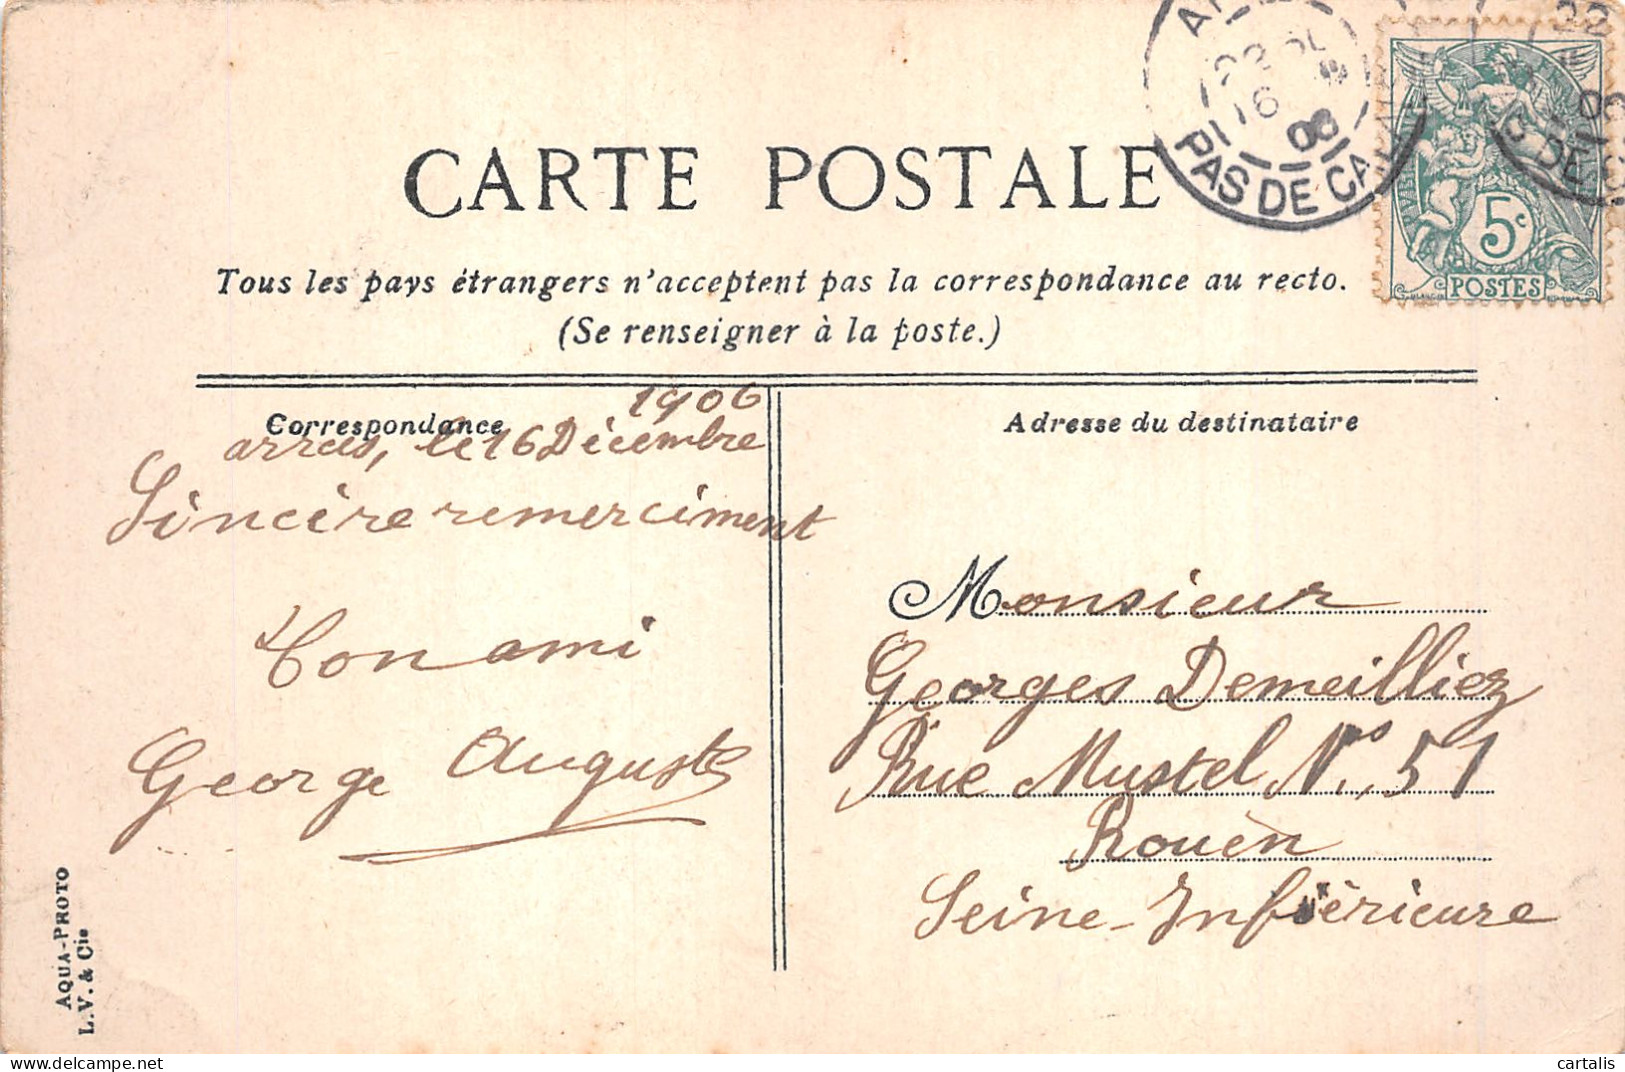 CARTE POSTALE
Tous les pays étrangers n'acceptent pas la correspondance au recto.
(Se renseigner à la poste.)
PAS DE CA
16
5c
POSTES
22
DE
Correspondance
1906
arras, le 16 Décembre
Sincère remerciment
Ton ami
George Auguste
Adresse du destinataire
Monsieur
Georges Demeilliez
Rue Mustel No, 51
Rouèn
Seine-Inférieure
AQUA-PHOTO
L.V. & Cie
cartalis